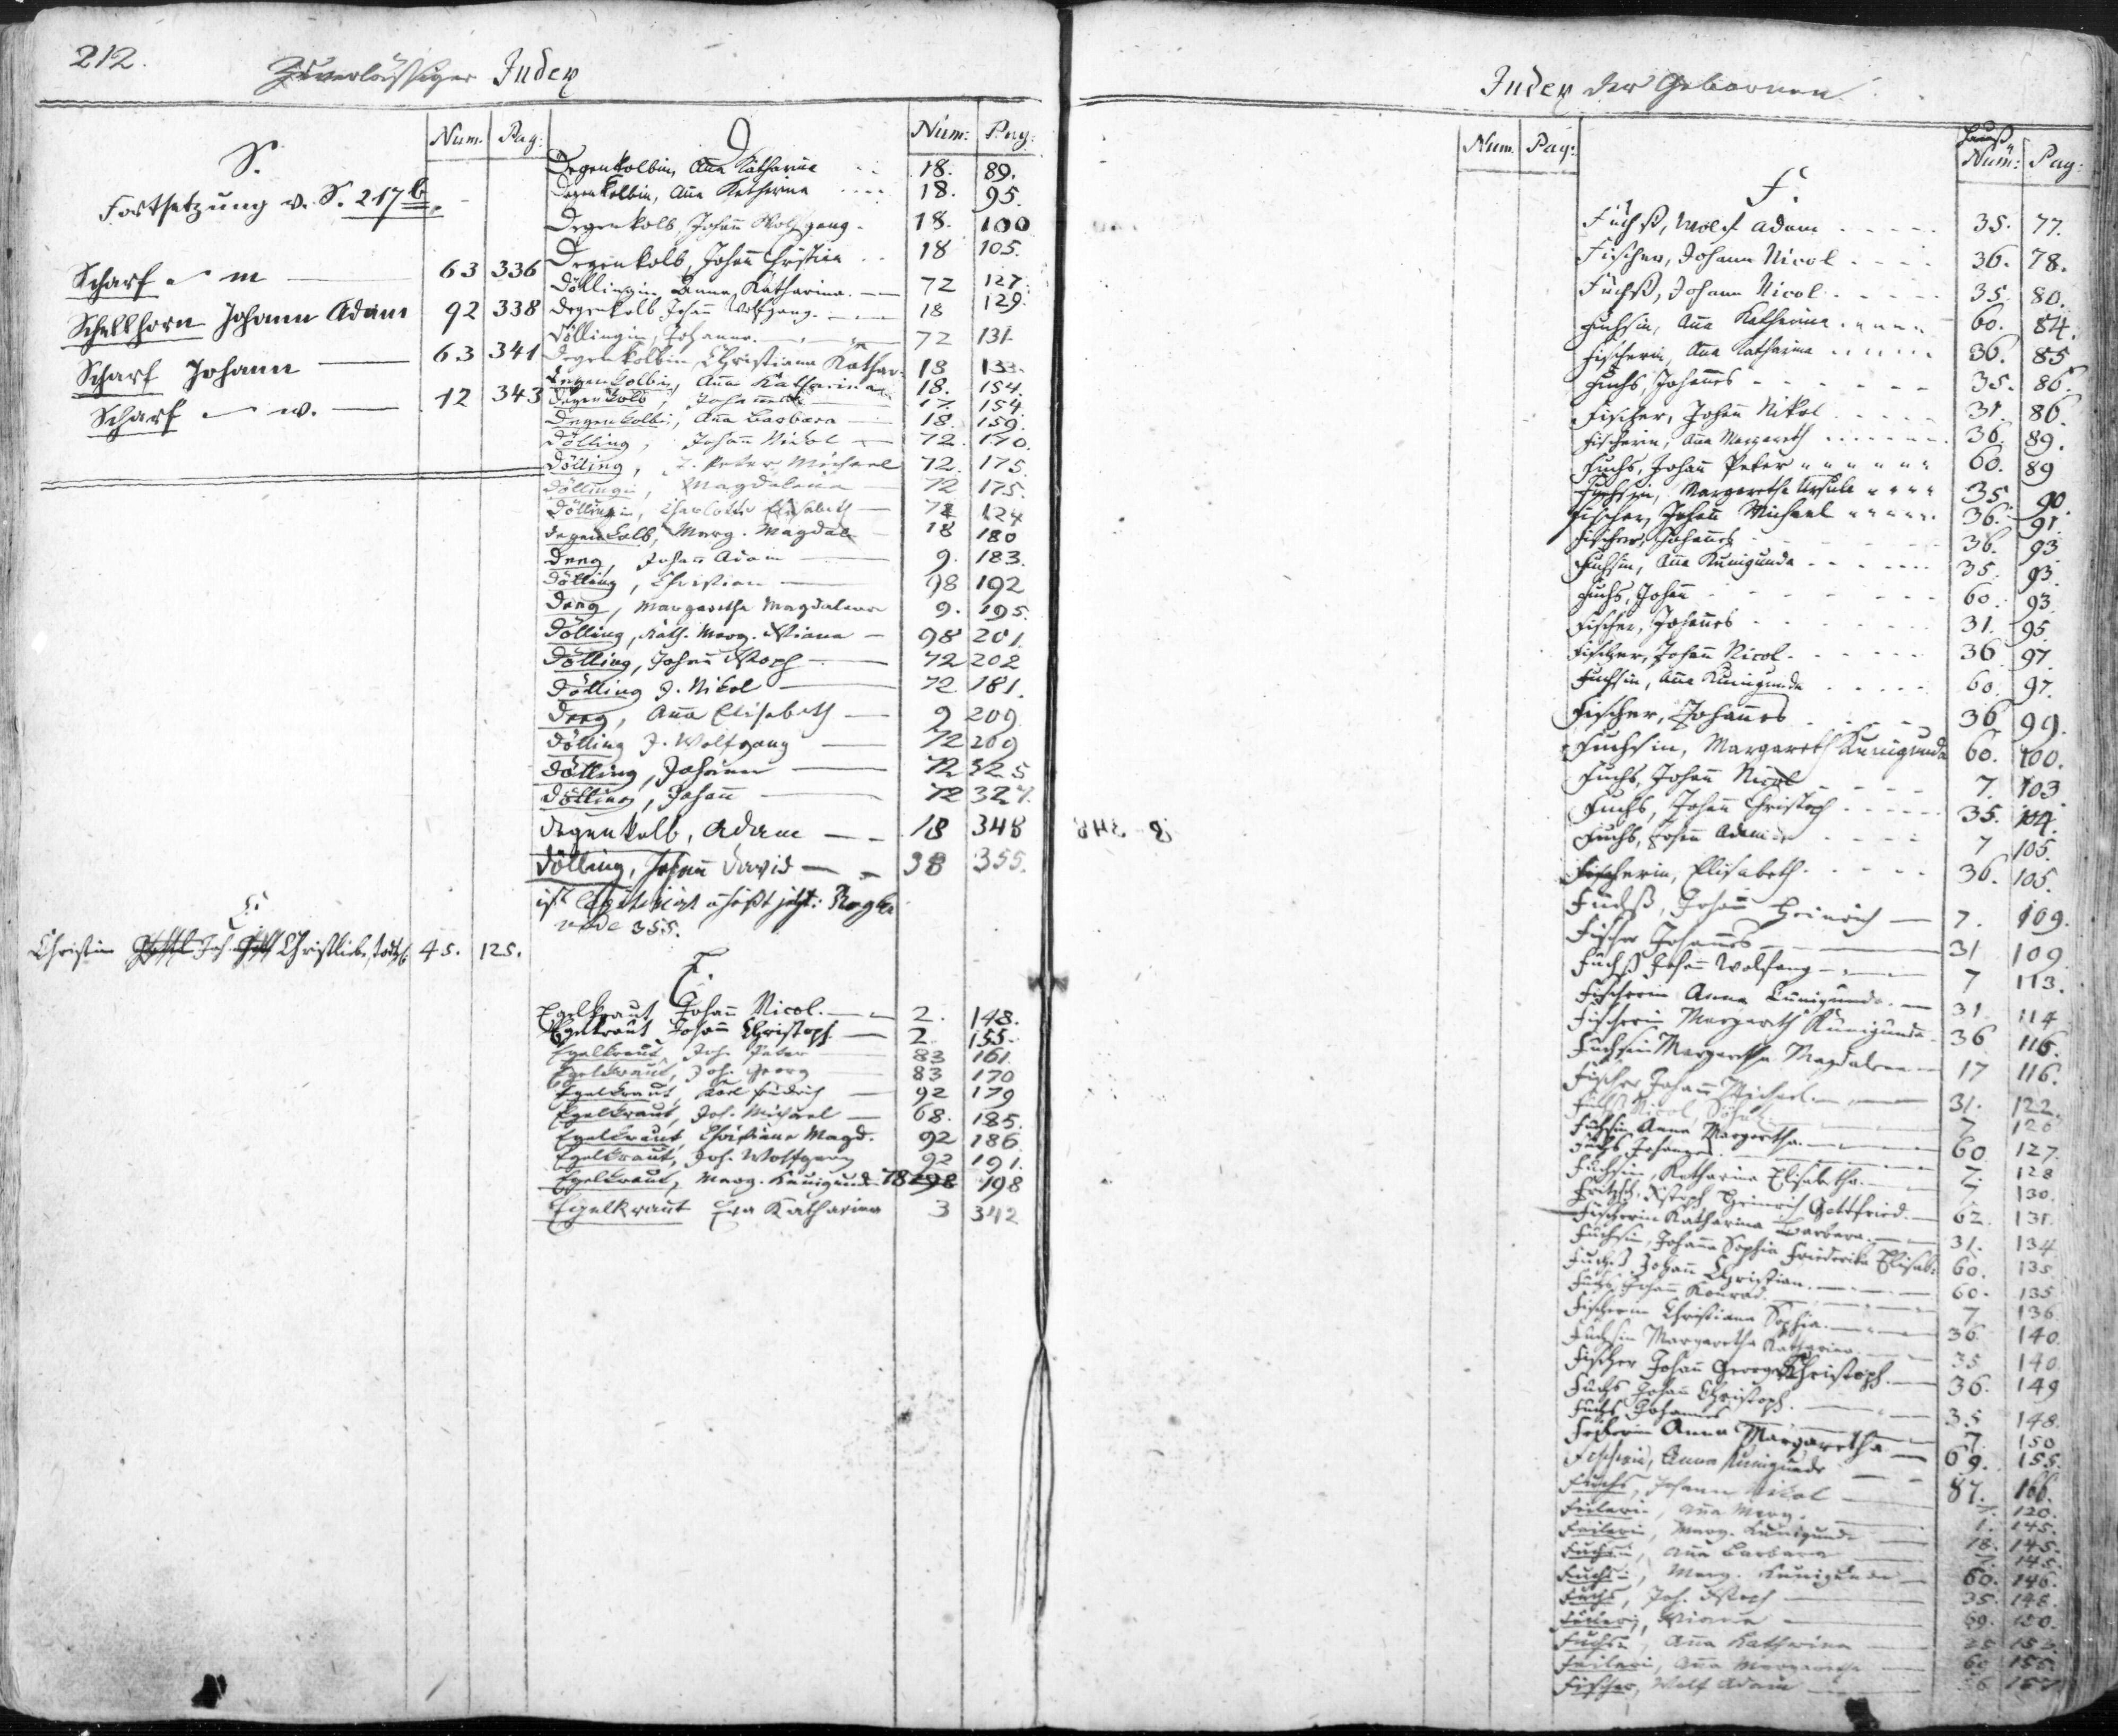 212.
Zuverlässiger Index
Num. Pag:
S.
Fortsetzung v. S. 217b.
Scharf m 63 336
Schellhorn Johann Adam 92 338
Scharf Johann 63 341
Scharf w. 12 343
C.
Christin Joh. Christliebe 45. 125.
D Num: Pag:
Degenkolbin, Aña Katharina 18. 89.
Degenkolbin, Aña Katharina 18. 95.
Degenkolb, Johañ Wolfgang 18. 100
Degenkolb, Johañ Christian 18 105.
Döllingin Anna Katharina. 72 127.
Degenkolb Johañ Wolfgang. 18 129.
Döllingin, Johanna. 72 131.
Degenkolbin Christiana Kathar. 18 133.
Degenkolbin, Aña Katharina 18. 154.
Degenkolb, Johannes 17. 154.
Degenkolbin, Aña Barbara 18. 159.
Dölling, Johañ Nikol 72. 170.
Dölling, J. Peter Michael 72. 175.
Döllingin, Magdalena 72 175.
Döllingin, Charlotte Elisabeth 72 124
Degenkolb, Marg. Magdal 18 180
Deeg, Johañ Adam 9. 183.
Dölling, Christian 98 192
Deeg, Margaretha Magdalena 9. 195.
Dölling, Kath. Marg. Xtiana 98 201.
Dölling, Johañ Xstoph 72 202
Dölling J. Nikol 72 181.
Deeg, Aña Elisabeth 9 209.
Dölling J. Wolfgang 72 209
Dölling, Johann 72 325
Dölling, Johañ 72 327.
Degenkolb, Adam 18 348
Dölling, Johañ David 38 355.
ist legitimirt u. heißt jetzt:
vide 355.
E.
Egelkraut Johañ Nicol. 2. 148.
Egelkraut Johañ Christoph 2. 155.
Egelkraut, Joh. Peter 83 161.
Egelkraut, Joh. Georg 83 170
Egelkraut, Karl Friedrich 92 179
Egelkraut, Joh. Michael 68. 185.
Egelkraut, Christiana Magd. 92 186
Egelkraut, Joh. Wolfgang 92 191.
Egelkraut, Marg. Kunigunda 78 198
Egelkraut Eva Katharina 3 342
Index der Gebornen
Num. Pag:
Hauß Num: Pag:
F.
Fuchß, Wolf Adam 35. 77.
Fischer, Johann Nicol 36. 78.
Fuchß, Johann Nicol 35. 80.
Fuchsin, Aña Katharina 60. 84.
Fischerin, Aña Katharina 36. 85
Fuchs, Johañes 35. 86.
Fischer, Johañ Nikol 31. 86.
Fischerin, Aña Margareth 36. 89.
Fuchs, Johañ Peter 60. 89
Fuchsin, Margaretha Ursula 35. 90.
Fischer, Johañ Michael 36. 91.
Fischer, Johañes 36. 93
Fuchsin, Aña Kunigunda 35. 93.
Fuchs, Johañ 60. 93.
Fischer, Johañes 31. 95.
Fischer, Johañ Nicol. 36 97.
Fuchsin, Aña Kunigunda 60. 97.
Fischer, Johañes 36 99.
Fuchsin, Margareth Kunigunda 60. 100.
Fuchs, Johañ Nicol 7. 103
Fuchs, Johañ Christoph 35. 104.
Fuchs, Johañ Adam 7 105.
Fischerin, Elisabeth. 36. 105.
Fuchß, Johañ Heinrich 7. 109.
Fischer Johañes 31 109
Fuchß Johañ Wolfgang 7 113.
Fischerin Anna Kunigunda. 31 114
Fischerin Margareth Kunigunda. 36 116.
Fuchsin Margaretha Magdalena 17 116.
Fischer Johañ Michael. 31. 122.
Fuchß Nicol, 7 126
Fuchsin Anna Margaretha. 60 127.
Fuchs Johannes. 7. 128
Fuchsin, Katharina Elisabetha. 7. 130.
Xstoph Heinrich Gottfried. 62. 131.
Fischerin Katharina Barbara. 31. 134
Fuchsin, Johañe Sophia Friederika Elisab. 60. 135
Fuchß Johañ Christian. 60. 135
Fuchß Johañ Konrad. 7 136
Fischerin Christiana Sophia. 36 140.
Fuchsin Margaretha Katharina. 35. 140
Fischer Johañ Georg Christoph. 36. 149
Fuchs Johañ Christoph. 35 148.
Fuchs Johannes 7. 150
Anna Margaretha 69. 155.
Fischerin, Anna Kunigunda 87. 166.
Fuchs, Johann Nikol 7. 120.
Feilerin, Aña Marg. 1. 145.
Feilerin, Marg. Kunigunda 18. 145.
Fuchsin, Aña Barbara 7. 145.
Fuchsin, Marg. Kunigunda 60. 146.
Fuchs, Joh. Xstoph 35. 148.
Xtiana 69. 150.
Fuchsin, Aña Katharina 152.
Feilerin, Aña Margaretha 60 155.
Fischer, Wolf Adam 36 157.